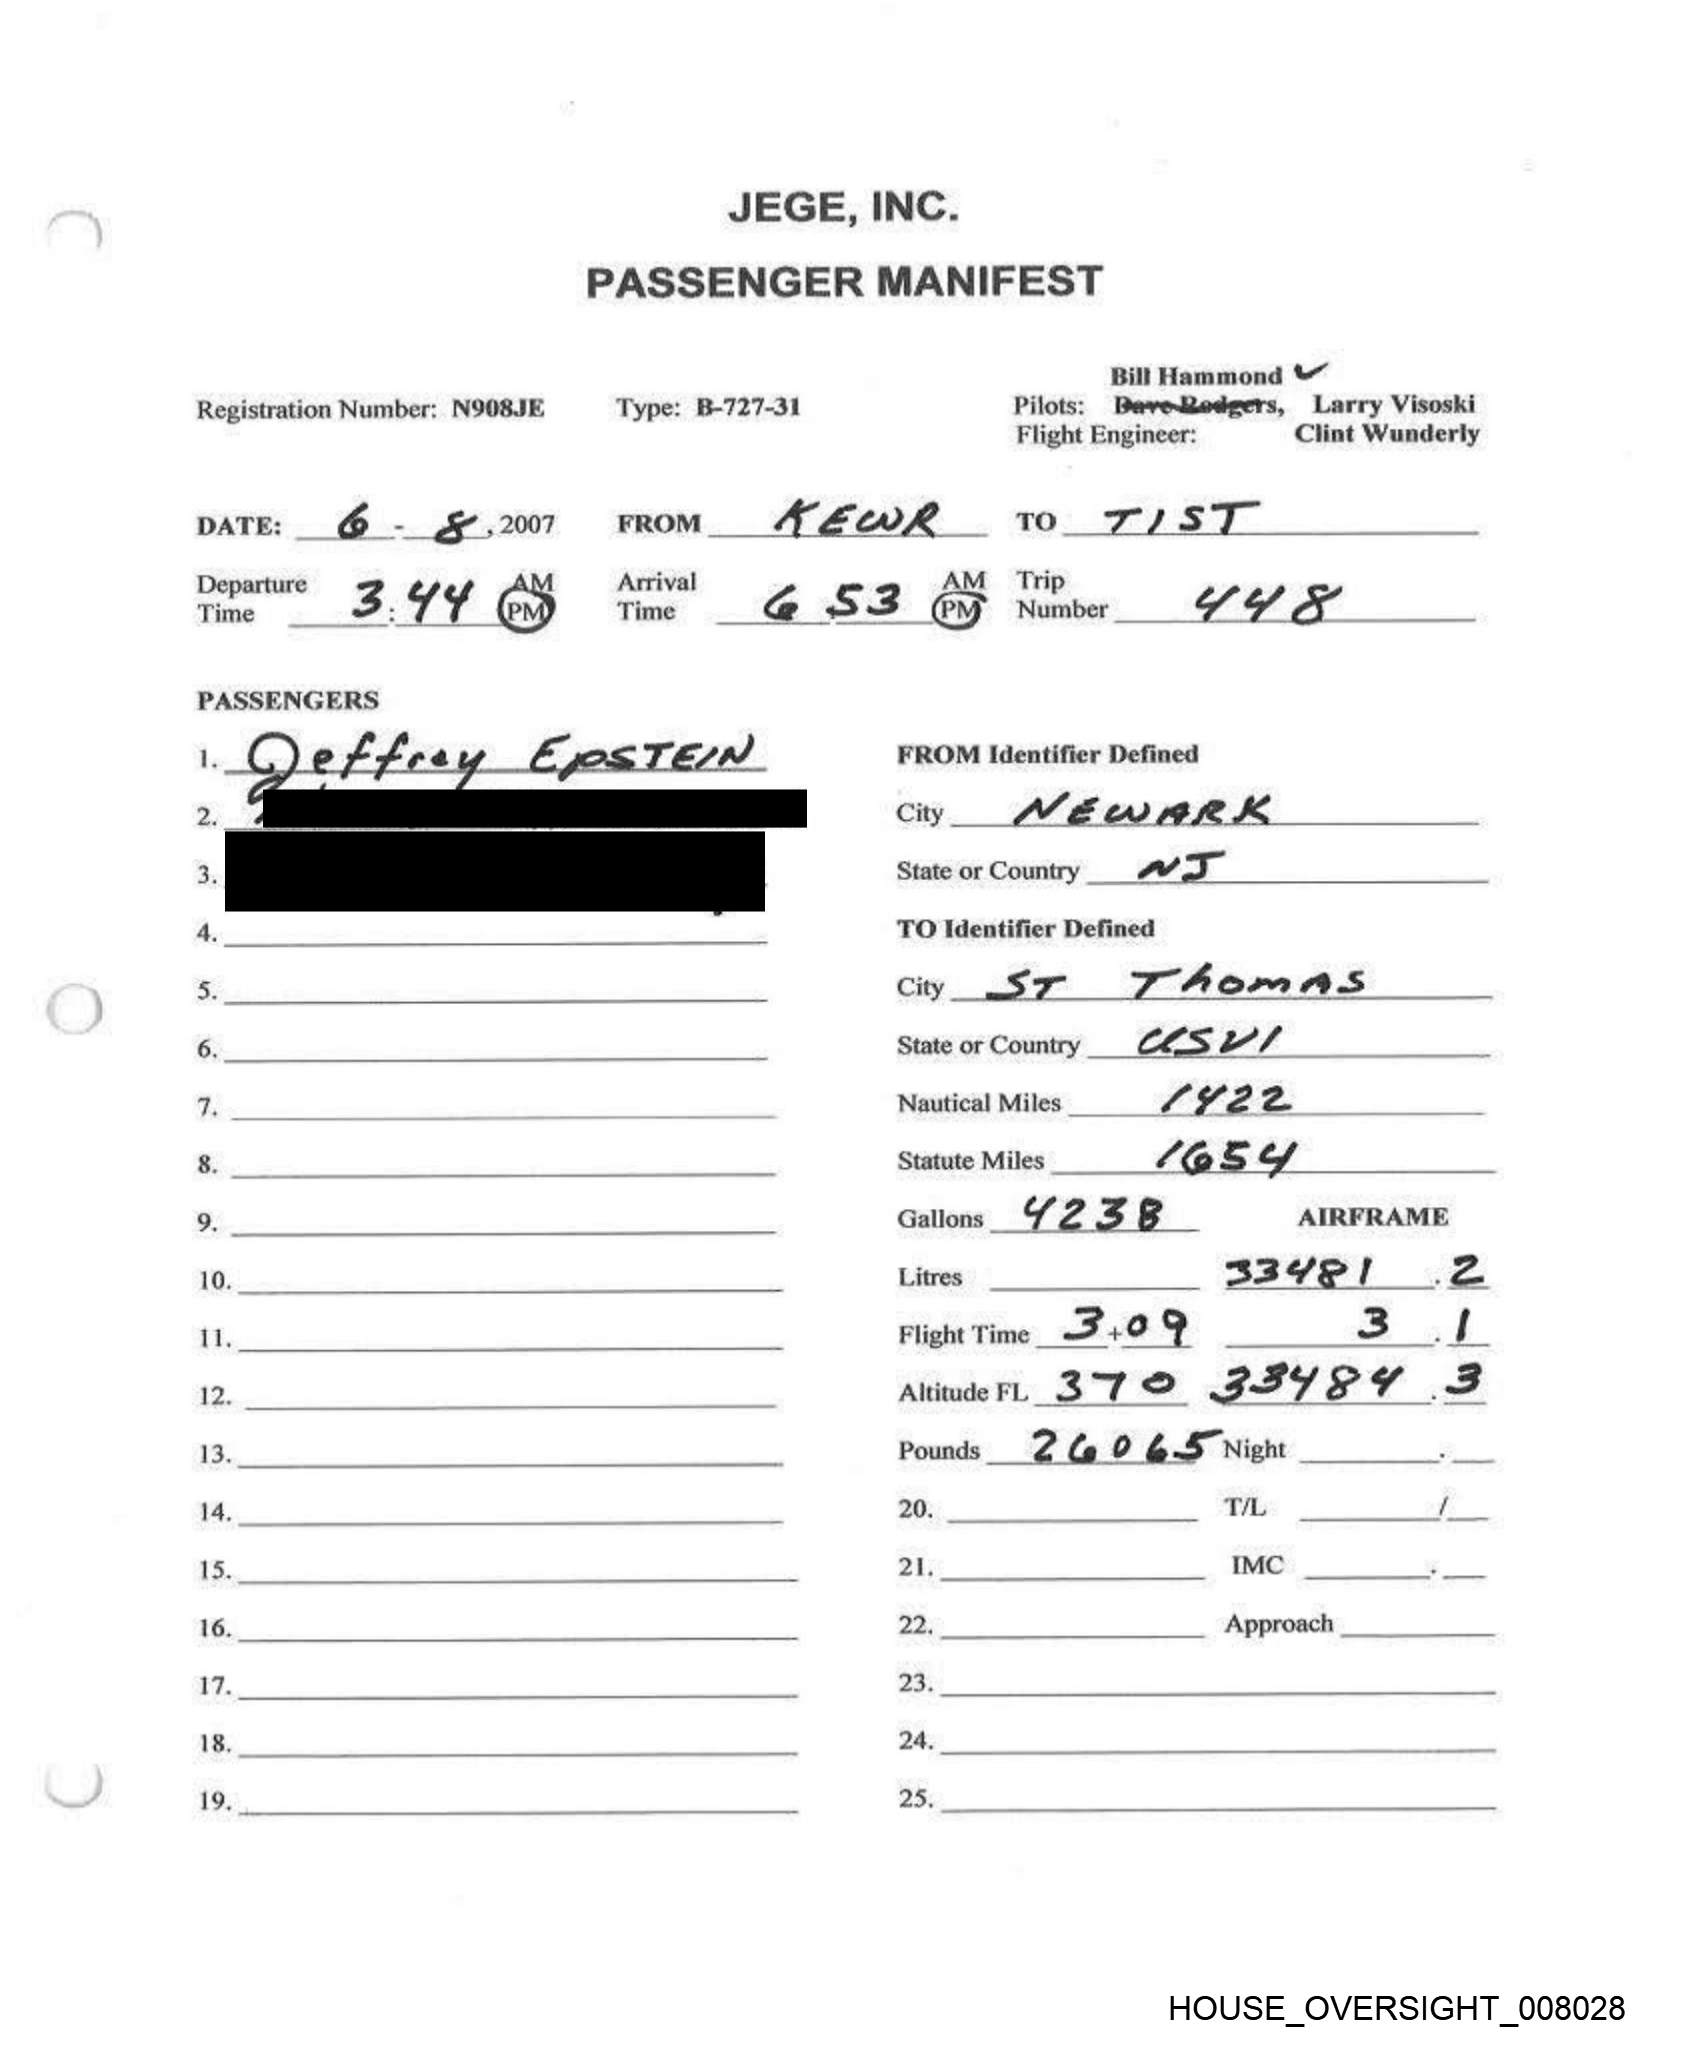 JEGE, INC.
PASSENGER MANIFEST
Bill Hammond ✓
Registration Number: N908JE Type: B-727-31 Pilots: Dave Rodgers, Larry Visoski
Flight Engineer: Clint Wunderly
DATE: 6 - 8, 2007 FROM KEWR TO TIST
Departure Time 3:44 AM PM Arrival Time 6 53 AM PM Trip Number 448
PASSENGERS
1. Jeffrey EPSTEIN
2.
3.
4.
5.
6.
7.
8.
9.
10.
11.
12.
13.
14.
15.
16.
17.
18.
19.
FROM Identifier Defined
City NEWARK
State or Country NJ
TO Identifier Defined
City ST ThomAS
State or Country USVI
Nautical Miles 1422
Statute Miles 1654
Gallons 4238 AIRFRAME
Litres 33481 .2
Flight Time 3+09 3 .1
Altitude FL 370 33484 .3
Pounds 26065 Night .
20. T/L /
21. IMC .
22. Approach
23.
24.
25.
HOUSE_OVERSIGHT_008028